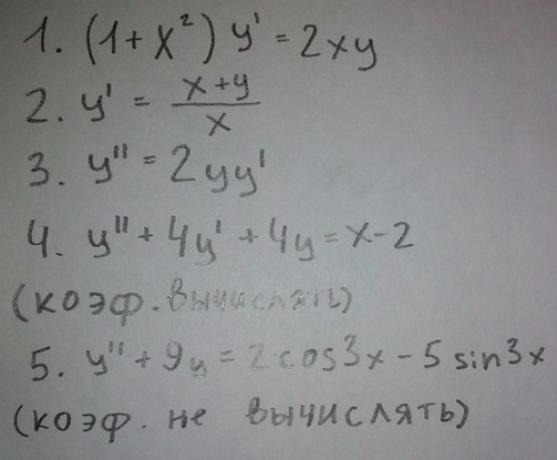 1. (1+x²) y' = 2xy
2. y' = (x+y)/x
3. y'' = 2yy'
4. y'' + 4y' + 4y = x-2
(коэф. вычислять)
5. y'' + 9y = 2cos3x - 5sin3x
(коэф. не вычислять)